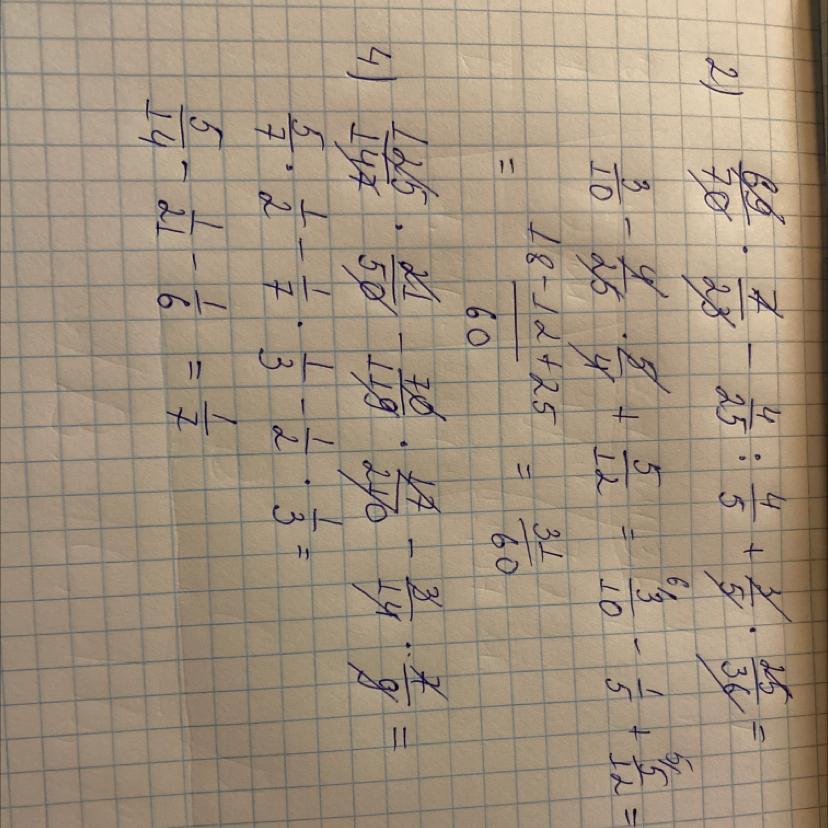 2) 69/70 · 7/23 - 4/25 : 4/5 + 3/5 · 25/36 =
3/10 - 4/25 · 5/4 + 5/12 = 3/10 - 1/5 + 5/12 =
= (18-12+25)/60 = 31/60
4) 125/147 · 21/50 - 70/119 · 17/210 - 3/14 · 7/9 =
5/7 · 1/2 - 1/7 · 1/3 - 1/2 · 1/3 =
5/14 - 1/21 - 1/6 = 1/7